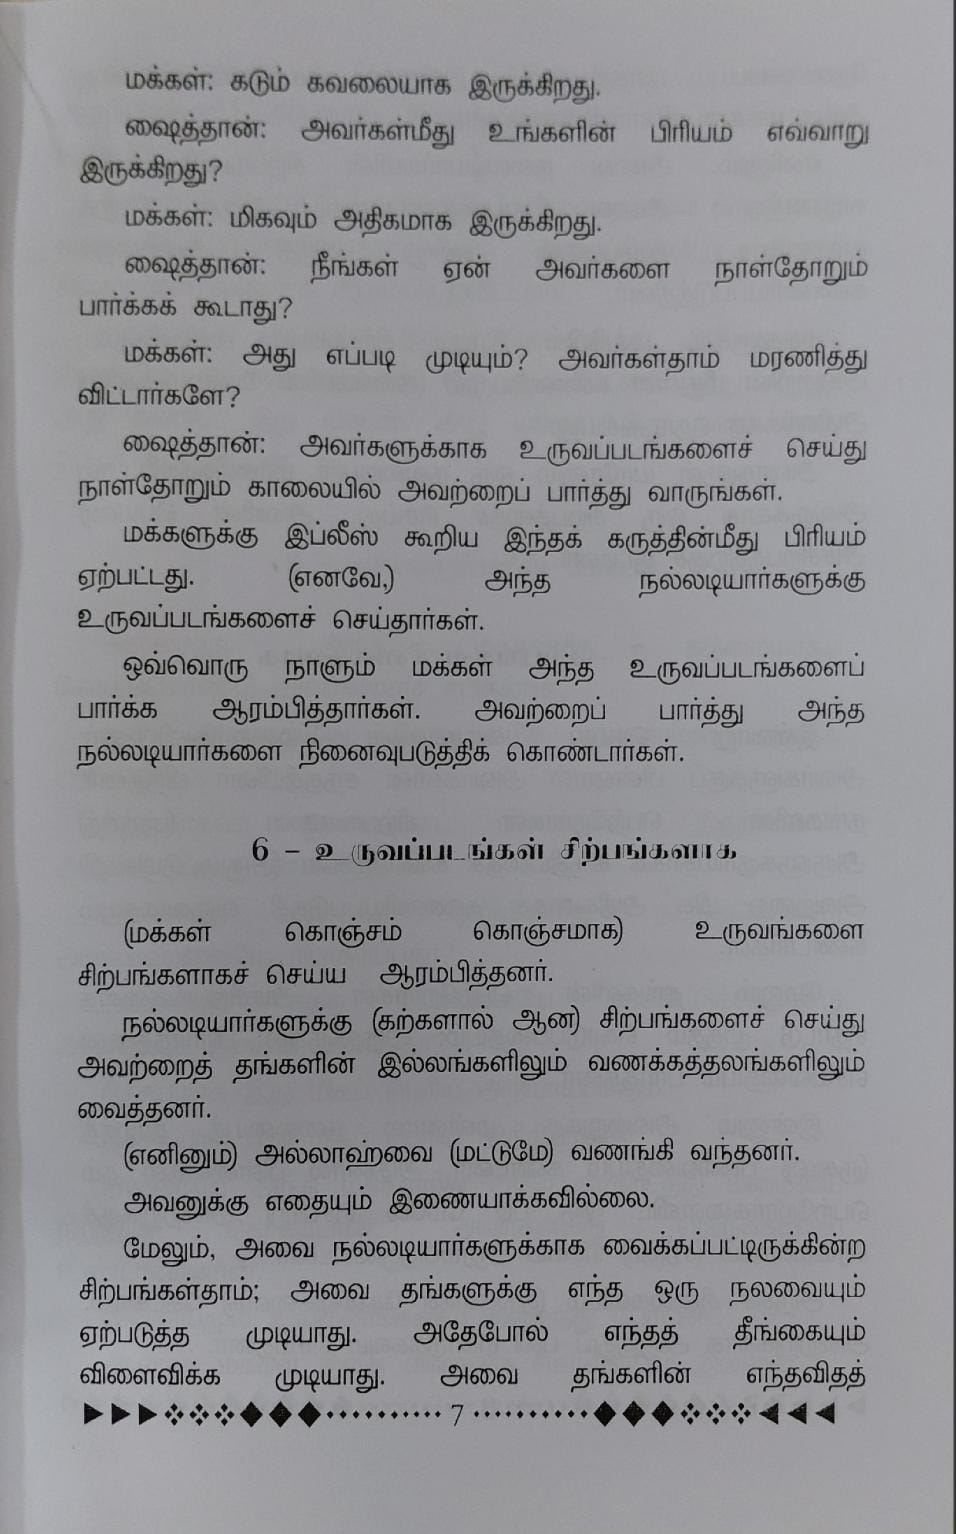 மக்கள்: கடும் கவலையாக இருக்கிறது.
ஷைத்தான்: அவர்கள்மீது உங்களின் பிரியம் எவ்வாறு
இருக்கிறது?
மக்கள்: மிகவும் அதிகமாக இருக்கிறது.
ஷைத்தான்: நீங்கள் ஏன் அவர்களை நாள்தோறும்
பார்க்கக் கூடாது?
மக்கள்: அது எப்படி முடியும்? அவர்கள்தாம் மரணித்து
விட்டார்களே?
ஷைத்தான்: அவர்களுக்காக உருவப்படங்களைச் செய்து
நாள்தோறும் காலையில் அவற்றைப் பார்த்து வாருங்கள்.
மக்களுக்கு இப்லீஸ் கூறிய இந்தக் கருத்தின்மீது பிரியம்
ஏற்பட்டது. (எனவே,) அந்த நல்லடியார்களுக்கு
உருவப்படங்களைச் செய்தார்கள்.
ஒவ்வொரு நாளும் மக்கள் அந்த உருவப்படங்களைப்
பார்க்க ஆரம்பித்தார்கள். அவற்றைப் பார்த்து அந்த
நல்லடியார்களை நினைவுபடுத்திக் கொண்டார்கள்.
6 – உருவப்படங்கள் சிற்பங்களாக
(மக்கள் கொஞ்சம் கொஞ்சமாக) உருவங்களை
சிற்பங்களாகச் செய்ய ஆரம்பித்தனர்.
நல்லடியார்களுக்கு (கற்களால் ஆன) சிற்பங்களைச் செய்து
அவற்றைத் தங்களின் இல்லங்களிலும் வணக்கத்தலங்களிலும்
வைத்தனர்.
(எனினும்) அல்லாஹ்வை (மட்டுமே) வணங்கி வந்தனர்.
அவனுக்கு எதையும் இணையாக்கவில்லை.
மேலும், அவை நல்லடியார்களுக்காக வைக்கப்பட்டிருக்கின்ற
சிற்பங்கள்தாம்; அவை தங்களுக்கு எந்த ஒரு நலவையும்
ஏற்படுத்த முடியாது. அதேபோல் எந்தத் தீங்கையும்
விளைவிக்க முடியாது. அவை தங்களின் எந்தவிதத்
7